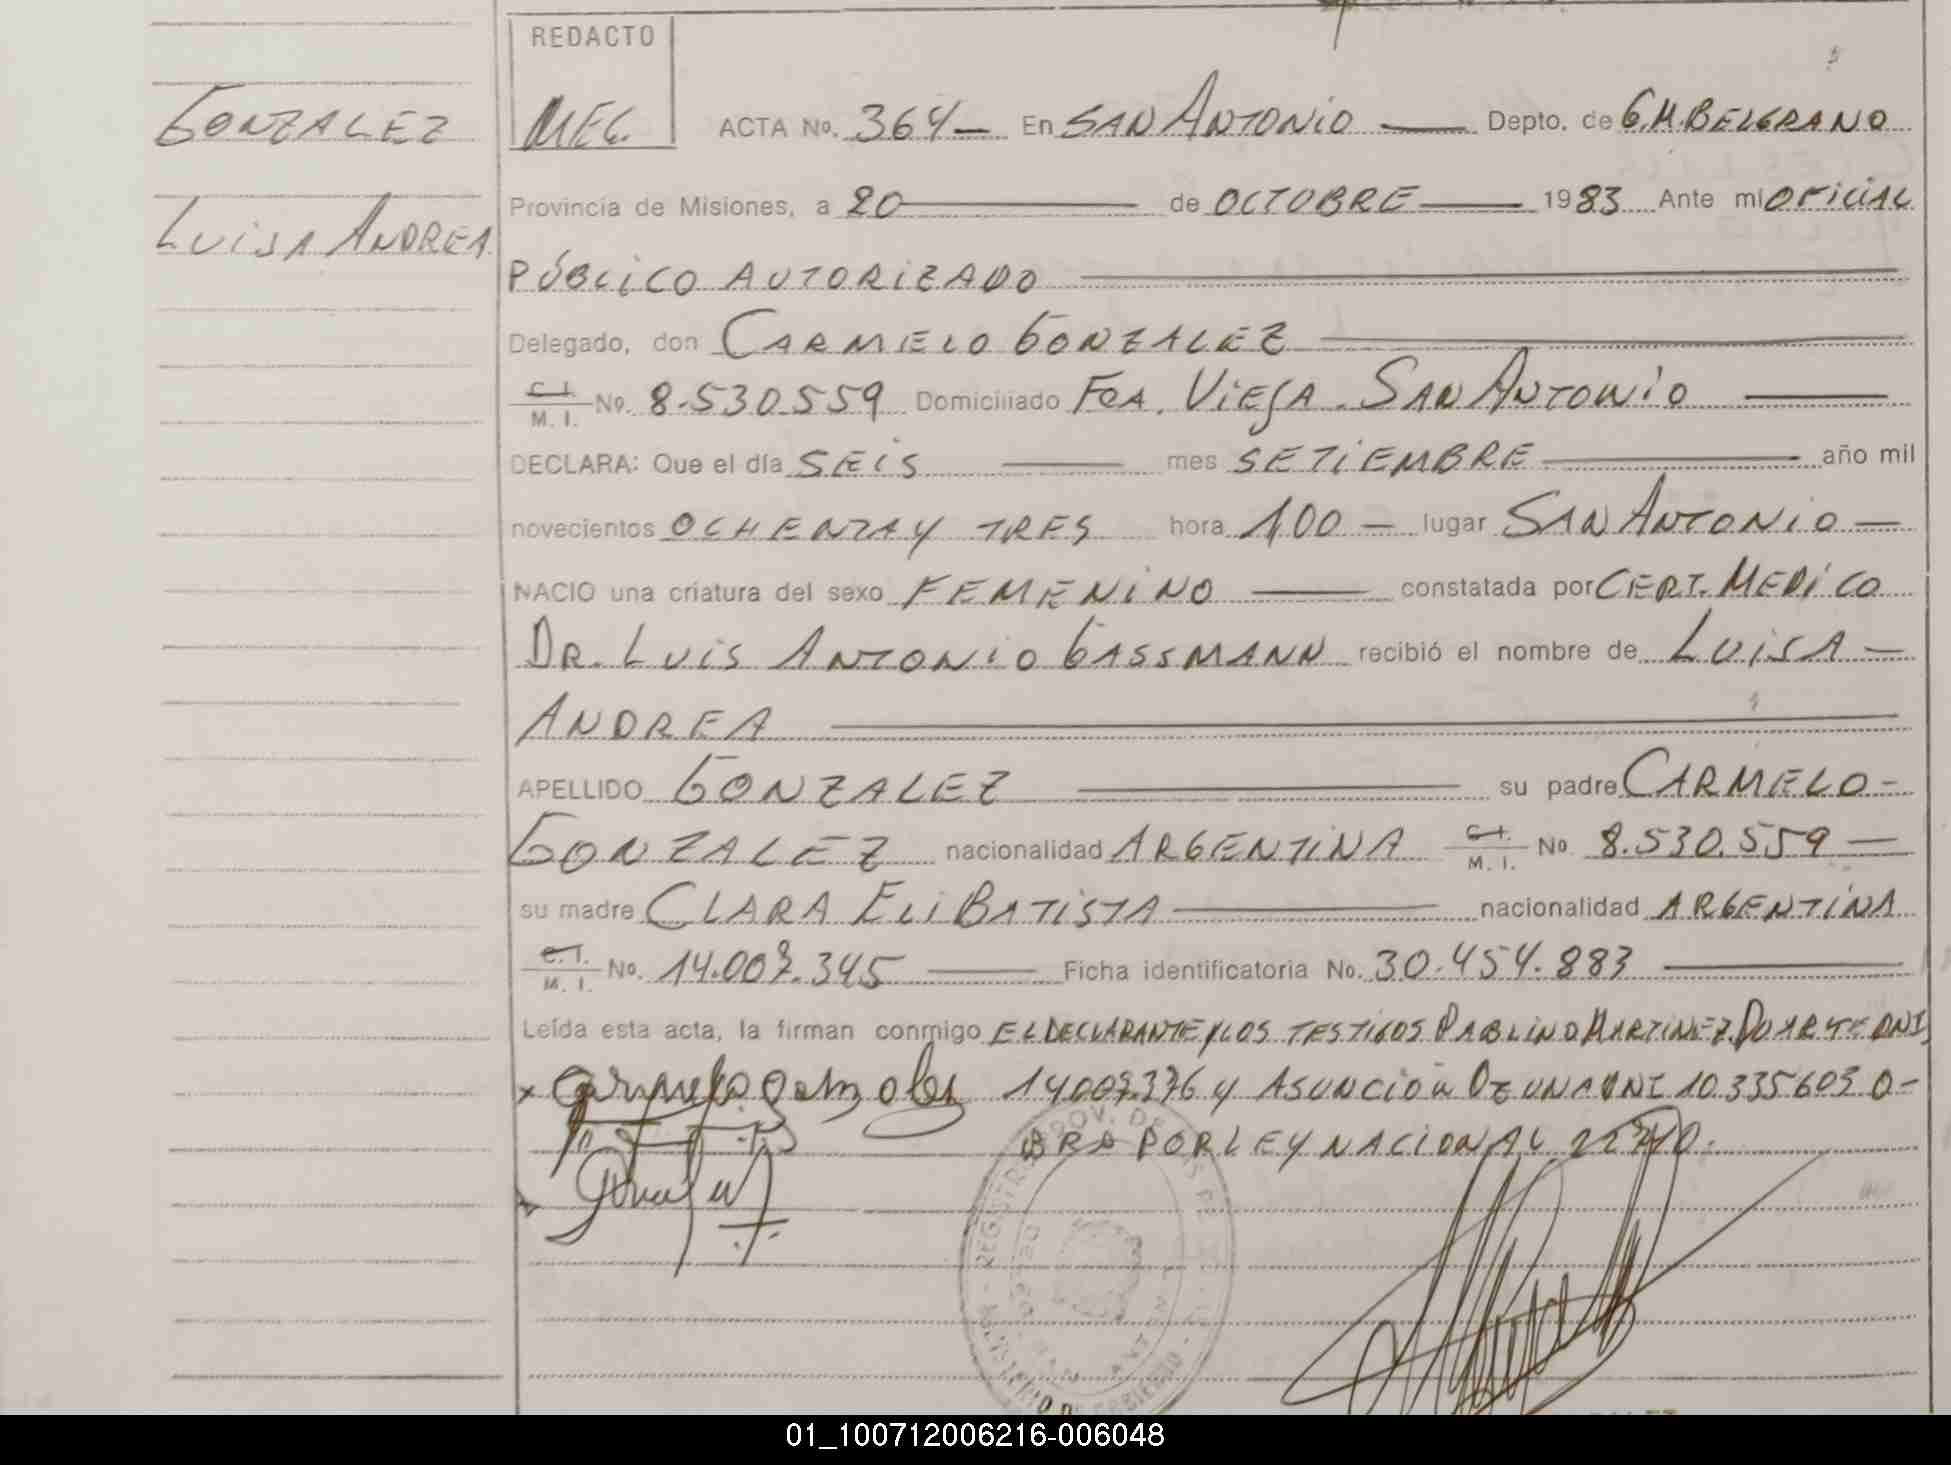 REDACTO
GONZALEZ
MEG.
ACTA No. 364 — En SAN ANTONIO — Depto. de G.M.BELGRANO
LUISA ANDREA.
Provincia de Misiones, a 20 — de OCTUBRE — 1983 Ante mi OFICIAL
PÚBLICO AUTORIZADO —
Delegado, don CARMELO GONZALEZ —
C.I. / M. I. No. 8.530.559 Domiciliado FCA. VIEJA. SAN ANTONIO —
DECLARA: Que el día SEIS — mes SETIEMBRE — año mil
novecientos OCHENTA Y TRES hora 1,00 — lugar SAN ANTONIO —
NACIO una criatura del sexo FEMENINO — constatada por CERT. MEDICO
DR. LUIS ANTONIO GASSMANN recibió el nombre de LUISA —
ANDREA —
APELLIDO GONZALEZ — su padre CARMELO -
GONZALEZ nacionalidad ARGENTINA C.I. / M. I. No. 8.530.559 —
su madre CLARA ELI BATISTA — nacionalidad ARGENTINA
C.I. / M. I. No. 14.007.345 — Ficha identificatoria No. 30.454.883 —
Leída esta acta, la firman conmigo EL DECLARANTE Y LOS TESTIGOS PABLINO MARTINEZ DUARTE DNI
x Carmelo Gonzales 14.007.376 y ASUNCIÓN OZUNA DNI 10.335.603 O-
BRA POR LEY NACIONAL
PROV. DE MISIONES
REGISTRO
MINISTERIO DE GOBIERNO
01_100712006216-006048